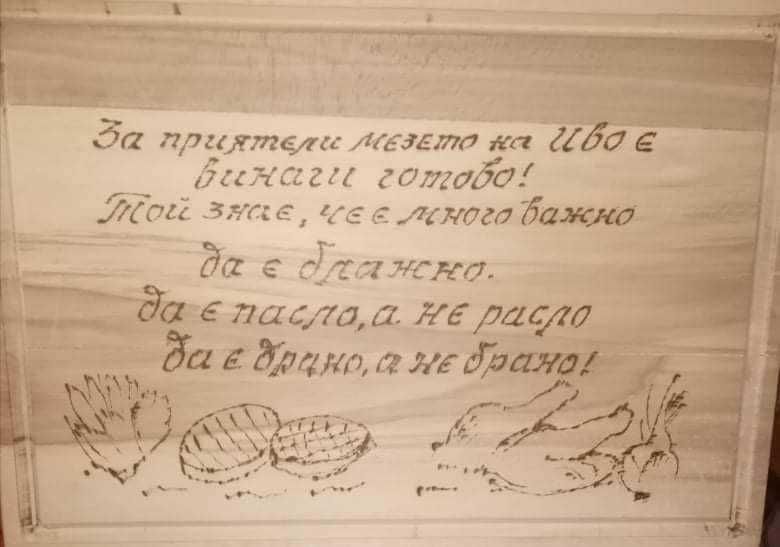 За приятели мезето на Иво е
винаги готово!
Той знае, че е много важно
да е блажно.
да е пасло, а не расло
да е драно, а не брано!